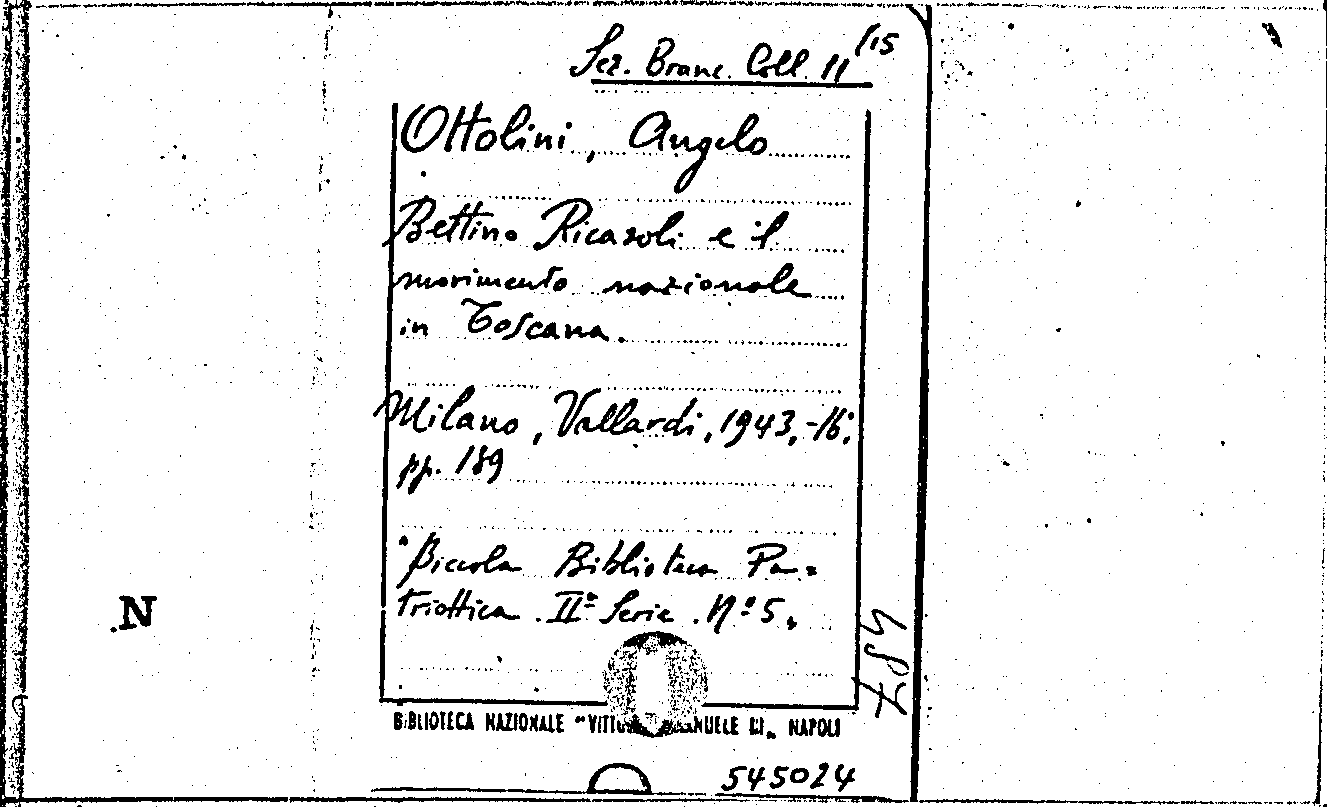 Sez. Branc. Coll. 11/15
Ottolini, Angelo
Bettino Ricasoli e il
movimento nazionale
in Toscana.
Milano, Vallardi, 1943,-16°,
pp. 189
"Piccola Biblioteca Pa-
triottica. IIª Serie. Nº 5.
N
487
BIBLIOTECA NAZIONALE "VITTORIO EMANUELE III" NAPOLI
545024